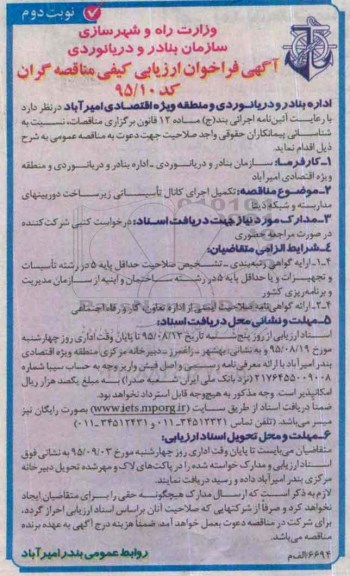 نوبت دوم
وزارت راه و شهرسازی
سازمان بنادر و دریانوردی
آگهی فراخوان ارزیابی کیفی مناقصه گران
کد ۹۵/۱۰
اداره بنادر و دریانوردی و منطقه ویژه اقتصادی امیرآباد در نظر دارد
با رعایت آئین‌نامه اجرائی بند(ج) ماده ۱۲ قانون برگزاری مناقصات، نسبت به
شناسائی پیمانکاران حقوقی واجد صلاحیت جهت دعوت به مناقصه عمومی به شرح
ذیل اقدام نماید.
۱-کارفرما: سازمان بنادر و دریانوردی ـ اداره بنادر و دریانوردی و منطقه
ویژه اقتصادی امیرآباد
۲-موضوع مناقصه: تکمیل اجرای کانال تأسیساتی زیرساخت دوربینهای
مداربسته و شبکه دیتا
۳-مدارک مورد نیاز جهت دریافت اسناد: درخواست کتبی شرکت کننده
در صورت مراجعه حضوری
۴-شرایط الزامی متقاضیان:
۴-۱-ارایه گواهی رتبه‌بندی ـ تشخیص صلاحیت حداقل پایه ۵ در رشته تأسیسات
و تجهیزات و یا حداقل پایه ۵ در رشته ساختمان و ابنیه از سازمان مدیریت
و برنامه‌ریزی کشور
۴-۲-ارائه گواهی‌نامه صلاحیت ایمنی از اداره تعاون، کار و رفاه اجتماعی
۵-مهلت و نشانی محل دریافت اسناد:
اسناد ارزیابی از روز پنج‌شنبه تاریخ ۹۵/۰۸/۱۳ تا پایان وقت اداری روز چهارشنبه
مورخ ۹۵/۰۸/۱۹ و به نشانی: بهشهر ـ زاغمرز ـ دبیرخانه مرکزی منطقه ویژه اقتصادی
بندر امیرآباد با ارائه معرفی‌نامه رسمی و اصل فیش واریز وجه به حساب سیبا شماره
۲۱۷۶۴۵۵۰۰۹۰۰۸ (نزد بانک ملی ایران شعبه صدرا) به مبلغ یکصد هزار ریال
امکانپذیر است. وجه مذکور به هیچ‌وجه قابل استرداد نخواهد بود.
ضمناً دریافت اسناد از طریق سایت (www.iets.mporg.ir) بصورت رایگان نیز
میسر می‌باشد. (تلفن تماس ۳۴۵۱۳۳۲۱-۰۱۱ و ۳۴۵۱۲۴۳۱-۰۱۱)
۶-مهلت و محل تحویل اسناد ارزیابی:
متقاضیان می‌بایست تا پایان وقت اداری روز چهارشنبه مورخ ۹۵/۰۹/۰۳ به نشانی فوق
اسناد ارزیابی و مدارک خواسته شده را در پاکت‌های لاک و مهر شده تحویل دبیرخانه
مرکزی بندر امیرآباد داده و رسید دریافت نمایند.
لازم به ذکر است که ارسال مدارک هیچگونه حقی را برای متقاضیان ایجاد
نخواهد کرد و صرفاً از شرکتهایی که صلاحیت آنان براساس اسناد ارزیابی احراز گردد،
برای شرکت در مناقصه دعوت بعمل خواهد آمد. ضمناً هزینه درج آگهی به عهده برنده
مناقصه می‌باشد.
۶۶۹۴/الف‌م
روابط عمومی بندر امیرآباد